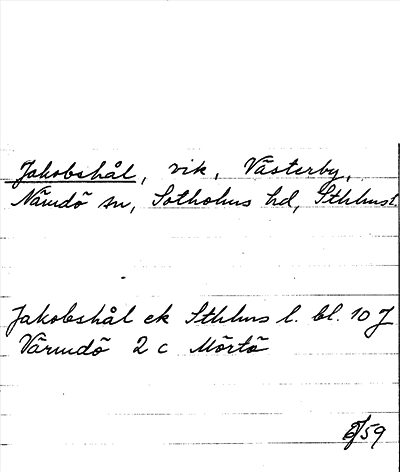 Jakobshål, vik, Västerby,
Nämdö sn, Sotholms hd, Sthlms l.
Jakobshål ek Sthlms l. bl. 10 J
Värmdö 2 c Mörtö
59